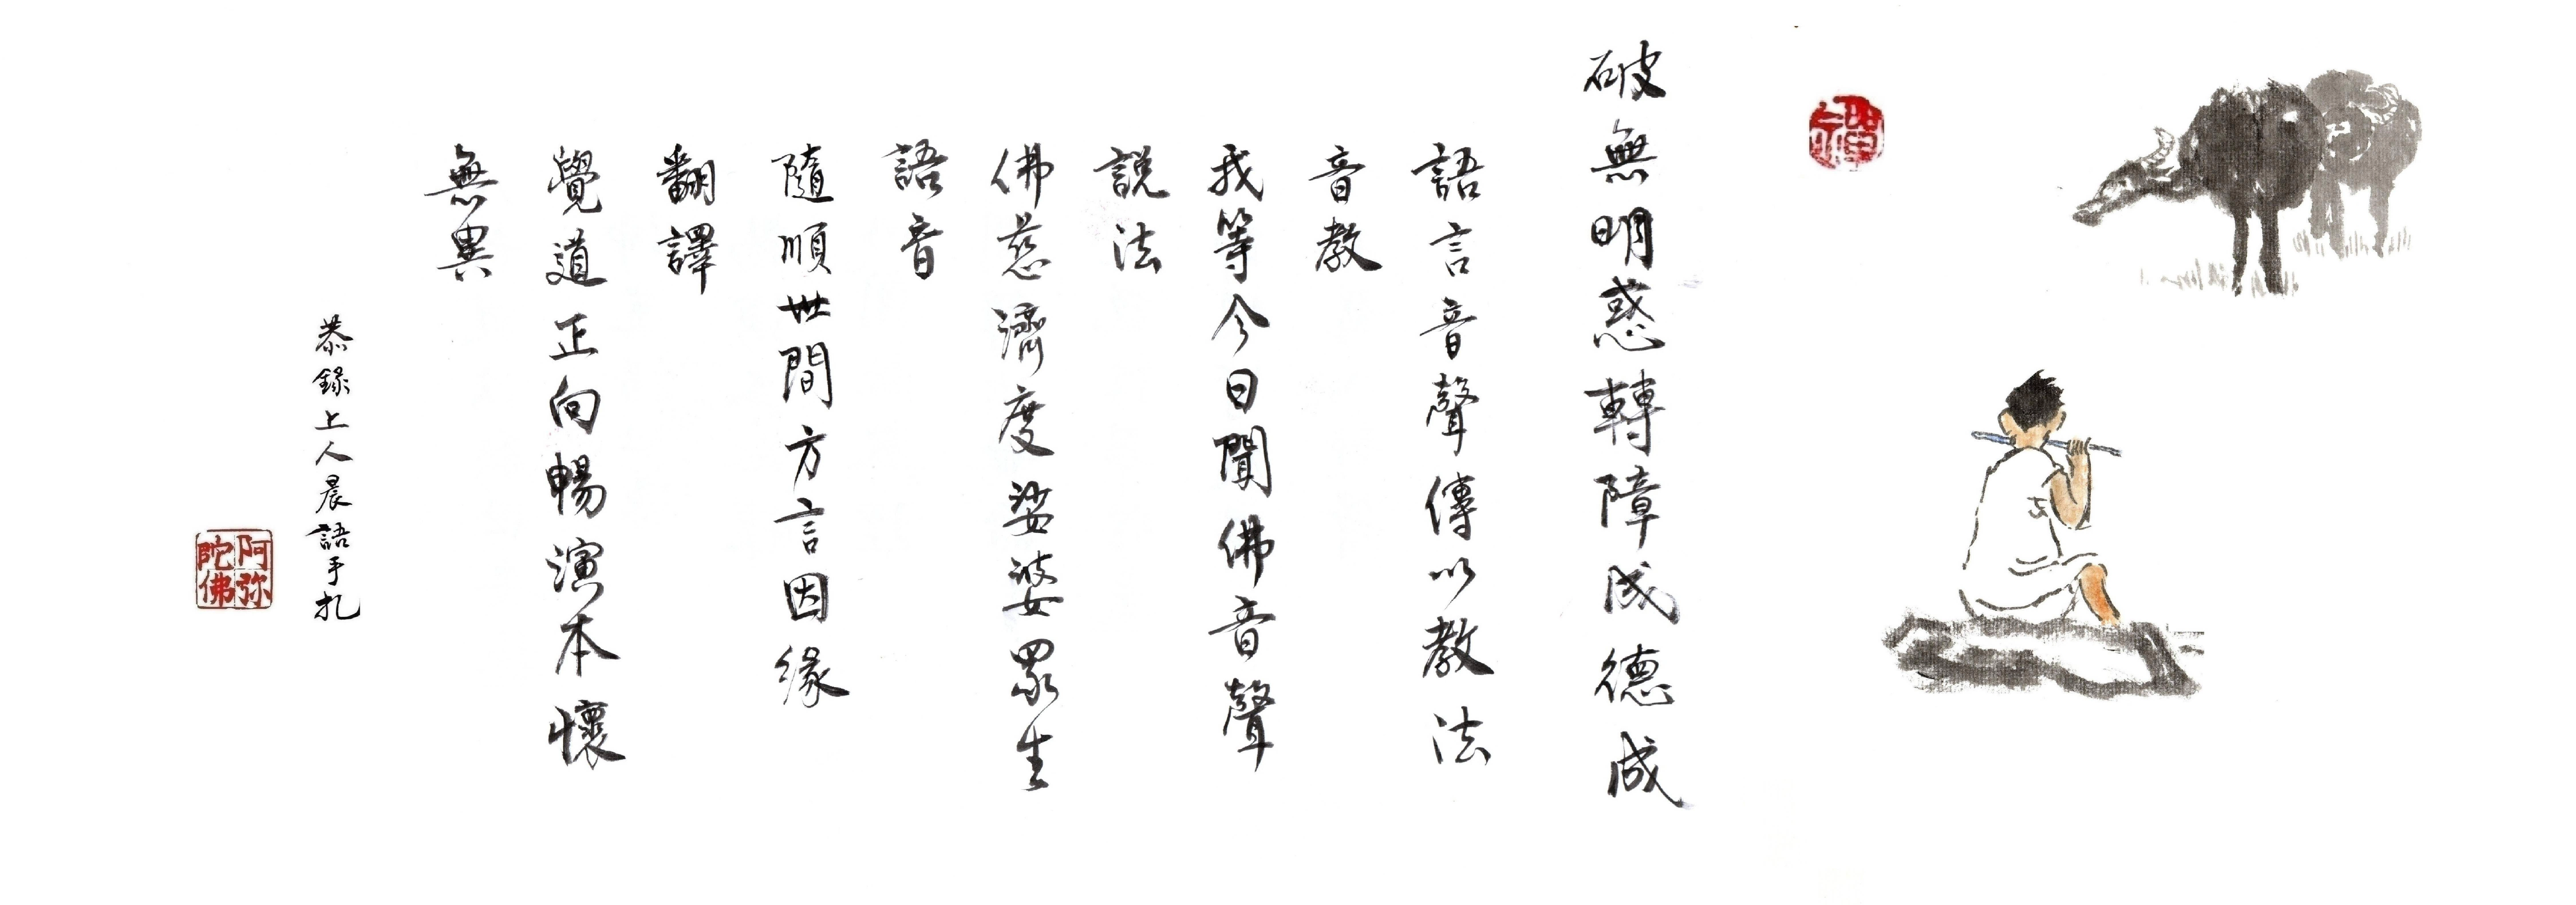 禪
破無明惑轉障成德成
語言音聲傳以教法
音教
我等今日聞佛音聲
說法
佛慈濟度娑婆眾生
語音
隨順世間方言因緣
翻譯
覺道正向暢演本懷
無異
恭錄上人晨語手札
阿弥
陀佛